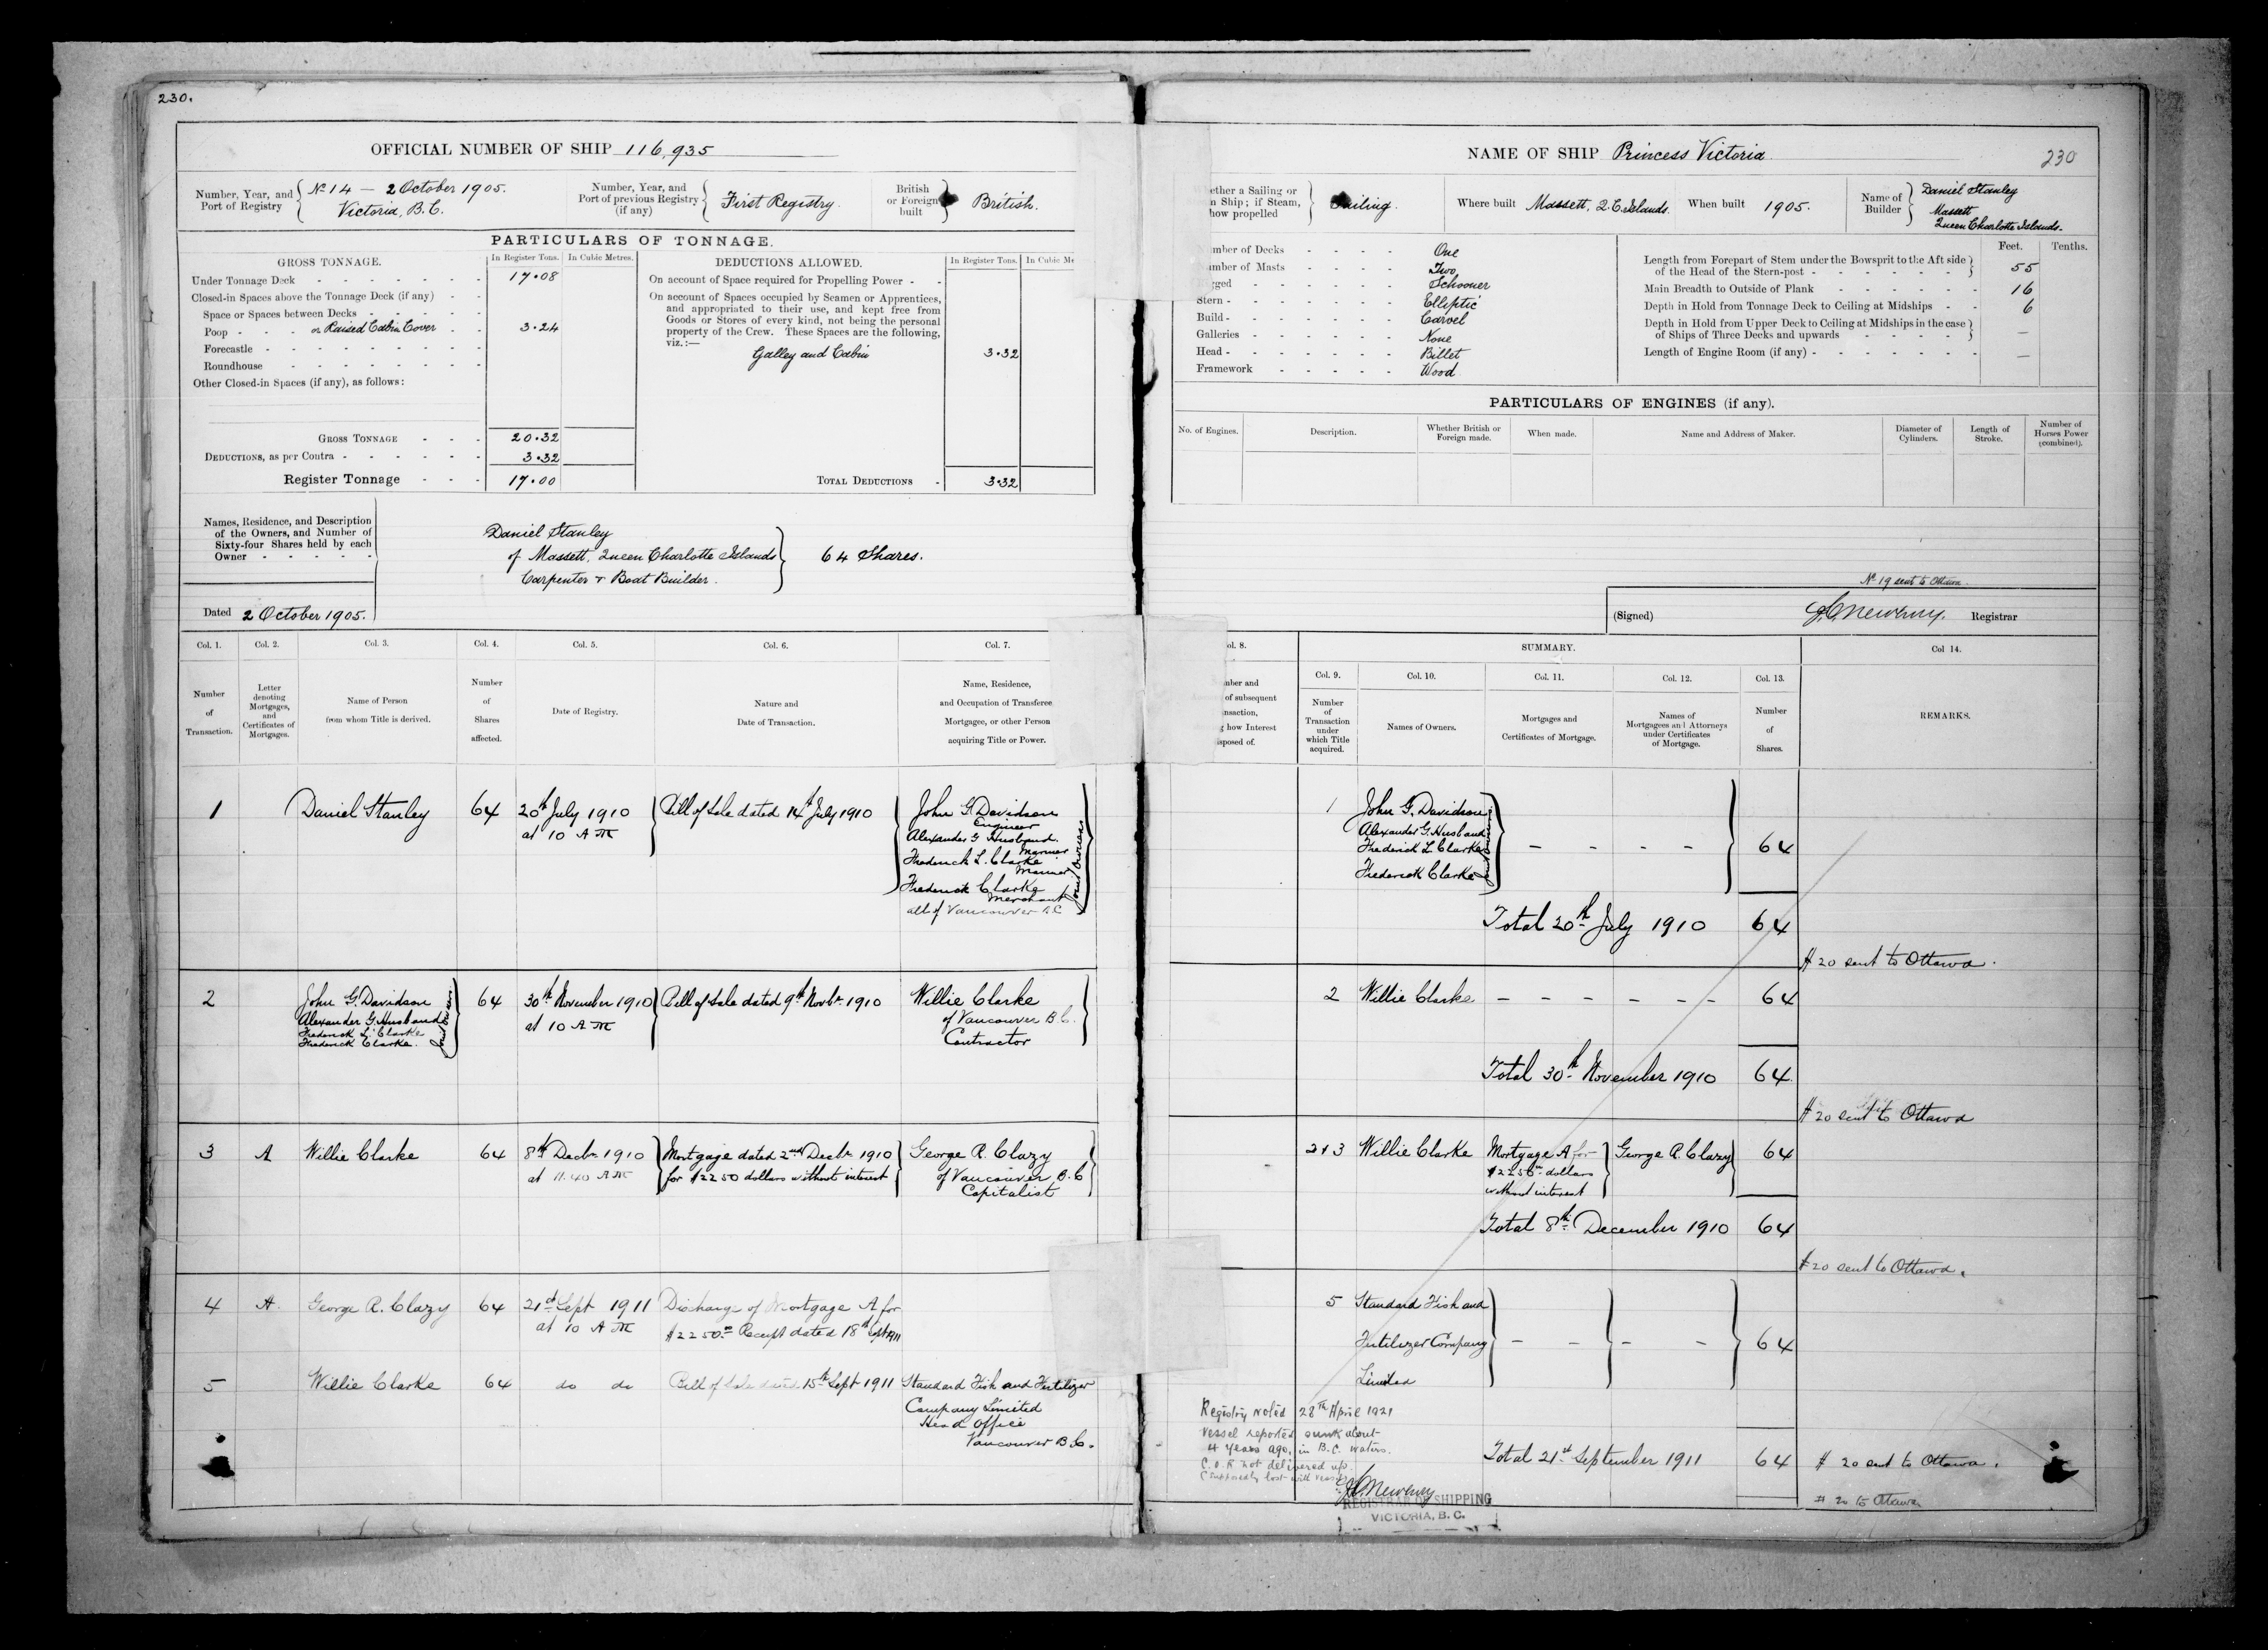 230.
OFFICIAL NUMBER OF SHIP 116,935
Number, Year, and Port of Registry
No 14 — 2 October 1905.
Victoria, B.C.
Number, Year, and Port of previous Registry (if any)
First Registry.
British or Foreign built
British.
PARTICULARS OF TONNAGE.
GROSS TONNAGE.
In Register Tons.
In Cubic Metres.
Under Tonnage Deck 17.08
Closed-in Spaces above the Tonnage Deck (if any)
Space or Spaces between Decks
Poop - or Raised Cabin Cover 3.24
Forecastle
Roundhouse
Other Closed-in Spaces (if any), as follows:
GROSS TONNAGE 20.32
DEDUCTIONS, as per Contra 3.32
Register Tonnage 17.00
DEDUCTIONS ALLOWED.
In Register Tons.
In Cubic Me
On account of Space required for Propelling Power -
On account of Spaces occupied by Seamen or Apprentices,
and appropriated to their use, and kept free from
Goods or Stores of every kind, not being the personal
property of the Crew. These Spaces are the following,
viz.:—
Galley and Cabin 3.32
TOTAL DEDUCTIONS - 3.32
Names, Residence, and Description
of the Owners, and Number of
Sixty-four Shares held by each
Owner
Daniel Stanley
of Massett, Queen Charlotte Islands
Carpenter & Boat Builder.
64 Shares.
Dated 2 October 1905.
Col. 1.
Number of Transaction.
Col. 2.
Letter denoting Mortgages, and Certificates of Mortgages.
Col. 3.
Name of Person from whom Title is derived.
Col. 4.
Number of Shares affected.
Col. 5.
Date of Registry.
Col. 6.
Nature and Date of Transaction.
Col. 7.
Name, Residence, and Occupation of Transferee Mortgagee, or other Person acquiring Title or Power.
1 Daniel Stanley 64 20th July 1910 at 10 AM Bill of Sale dated 14th July 1910
John G. Davidson
Engineer
Alexander G Husband
Mariner
Frederick L. Clarke
Mariner
Frederick Clarke
Merchant
all of Vancouver B.C
Joint Owners
2
John G. Davidson
Alexander G. Husband
Frederick L. Clarke
Frederick Clarke.
Joint Owners
64 30th November 1910 at 10 AM Bill of Sale dated 9th Novbr 1910
Willie Clarke
of Vancouver B.C.
Contractor
3 A Willie Clarke 64 8th Decbr 1910 at 11.40 AM
Mortgage dated 2nd Decbr 1910
for $2250 dollars without interest
George R. Clazy
of Vancouver B.C
Capitalist
4 A. George R. Clazy 64 21st Sept 1911 at 10 AM
Discharge of Mortgage A for
$2250.00 Receipt dated 18th Sept 1911
5 Willie Clarke 64 do do Bill of Sale dated 15th Sept 1911
Standard Fish and Fertilizer
Company Limited
Head Office
Vancouver B.C.
NAME OF SHIP Princess Victoria
230
ether a Sailing or
n Ship; if Steam,
how propelled
Sailing.
Where built Massett, Q.C. Islands.
When built 1905.
Name of Builder
Daniel Stanley
Massett
Queen Charlotte Islands.
umber of Decks One
umber of Masts Two
gged Schooner
Stern - Elliptic
Build - Carvel
Galleries None
Head - Billet
Framework Wood
Feet.
Tenths.
Length from Forepart of Stem under the Bowsprit to the Aft side
of the Head of the Stern-post - 55
Main Breadth to Outside of Plank 16
Depth in Hold from Tonnage Deck to Ceiling at Midships 6
Depth in Hold from Upper Deck to Ceiling at Midships in the case
of Ships of Three Decks and upwards —
Length of Engine Room (if any) - —
PARTICULARS OF ENGINES (if any).
No. of Engines.
Description.
Whether British or Foreign made.
When made.
Name and Address of Maker.
Diameter of Cylinders.
Length of Stroke.
Number of Horses Power (combined).
No 19 sent to Ottawa.
(Signed) Registrar
ol. 8.
mber and
of subsequent
nsaction,
g how Interest
sposed of.
SUMMARY.
Col. 9.
Number of Transaction under which Title acquired.
Col. 10.
Names of Owners.
Col. 11.
Mortgages and Certificates of Mortgage.
Col. 12.
Names of Mortgagees and Attorneys under Certificates of Mortgage.
Col. 13.
Number of Shares.
Col 14.
REMARKS.
1
John G. Davidson
Alexander G. Husband
Frederick L. Clarke
Frederick Clarke
- - - - 64
Total 20th July 1910 64
# 20 sent to Ottawa.
2 Willie Clarke - - - - - - 64
Total 30th November 1910 64
# 20 sent to Ottawa
2 & 3 Willie Clarke
Mortgage A for
$2250.00 dollars
without interest
George R. Clazy 64
Total 8th December 1910 64
# 20 sent to Ottawa.
5 Standard Fish and
Fertilizer Company
Limited
- - - - 64
Registry noted 28th April 1921
Vessel reported sunk about
4 years ago, in B.C. waters.
C.O.R not delivered up.
(Supposedly lost with vessel)
Total 21st September 1911 64
# 20 sent to Ottawa.
# 20 to Ottawa
REGISTRAR OF SHIPPING
VICTORIA, B.C.